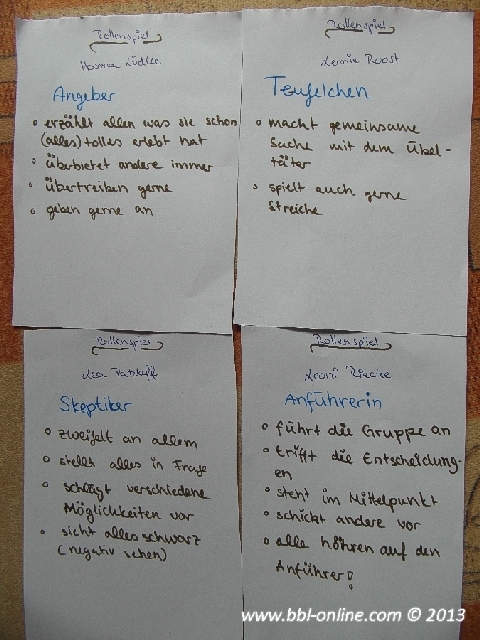 Rollenspiel
Angeber
erzählt allen was sie schon
(alles) tolles erlebt hat
überbietet andere immer
übertreiben gerne
geben gerne an
Rollenspiel
Teufelchen
macht gemeinsame
Sache mit dem Übel-
täter
spielt auch gerne
Streiche
Rollenspiel
Skeptiker
zweifelt an allem
stellt alles in Frage
schlägt verschiedene
Möglichkeiten vor
sieht alles schwarz
(negativ sehen)
Rollenspiel
Anführerin
führt die Gruppe an
trifft die Entscheidung-
en
steht im Mittelpunkt
schickt andere vor
alle höhren auf den
Anführer!
www.bbl-online.com © 2013